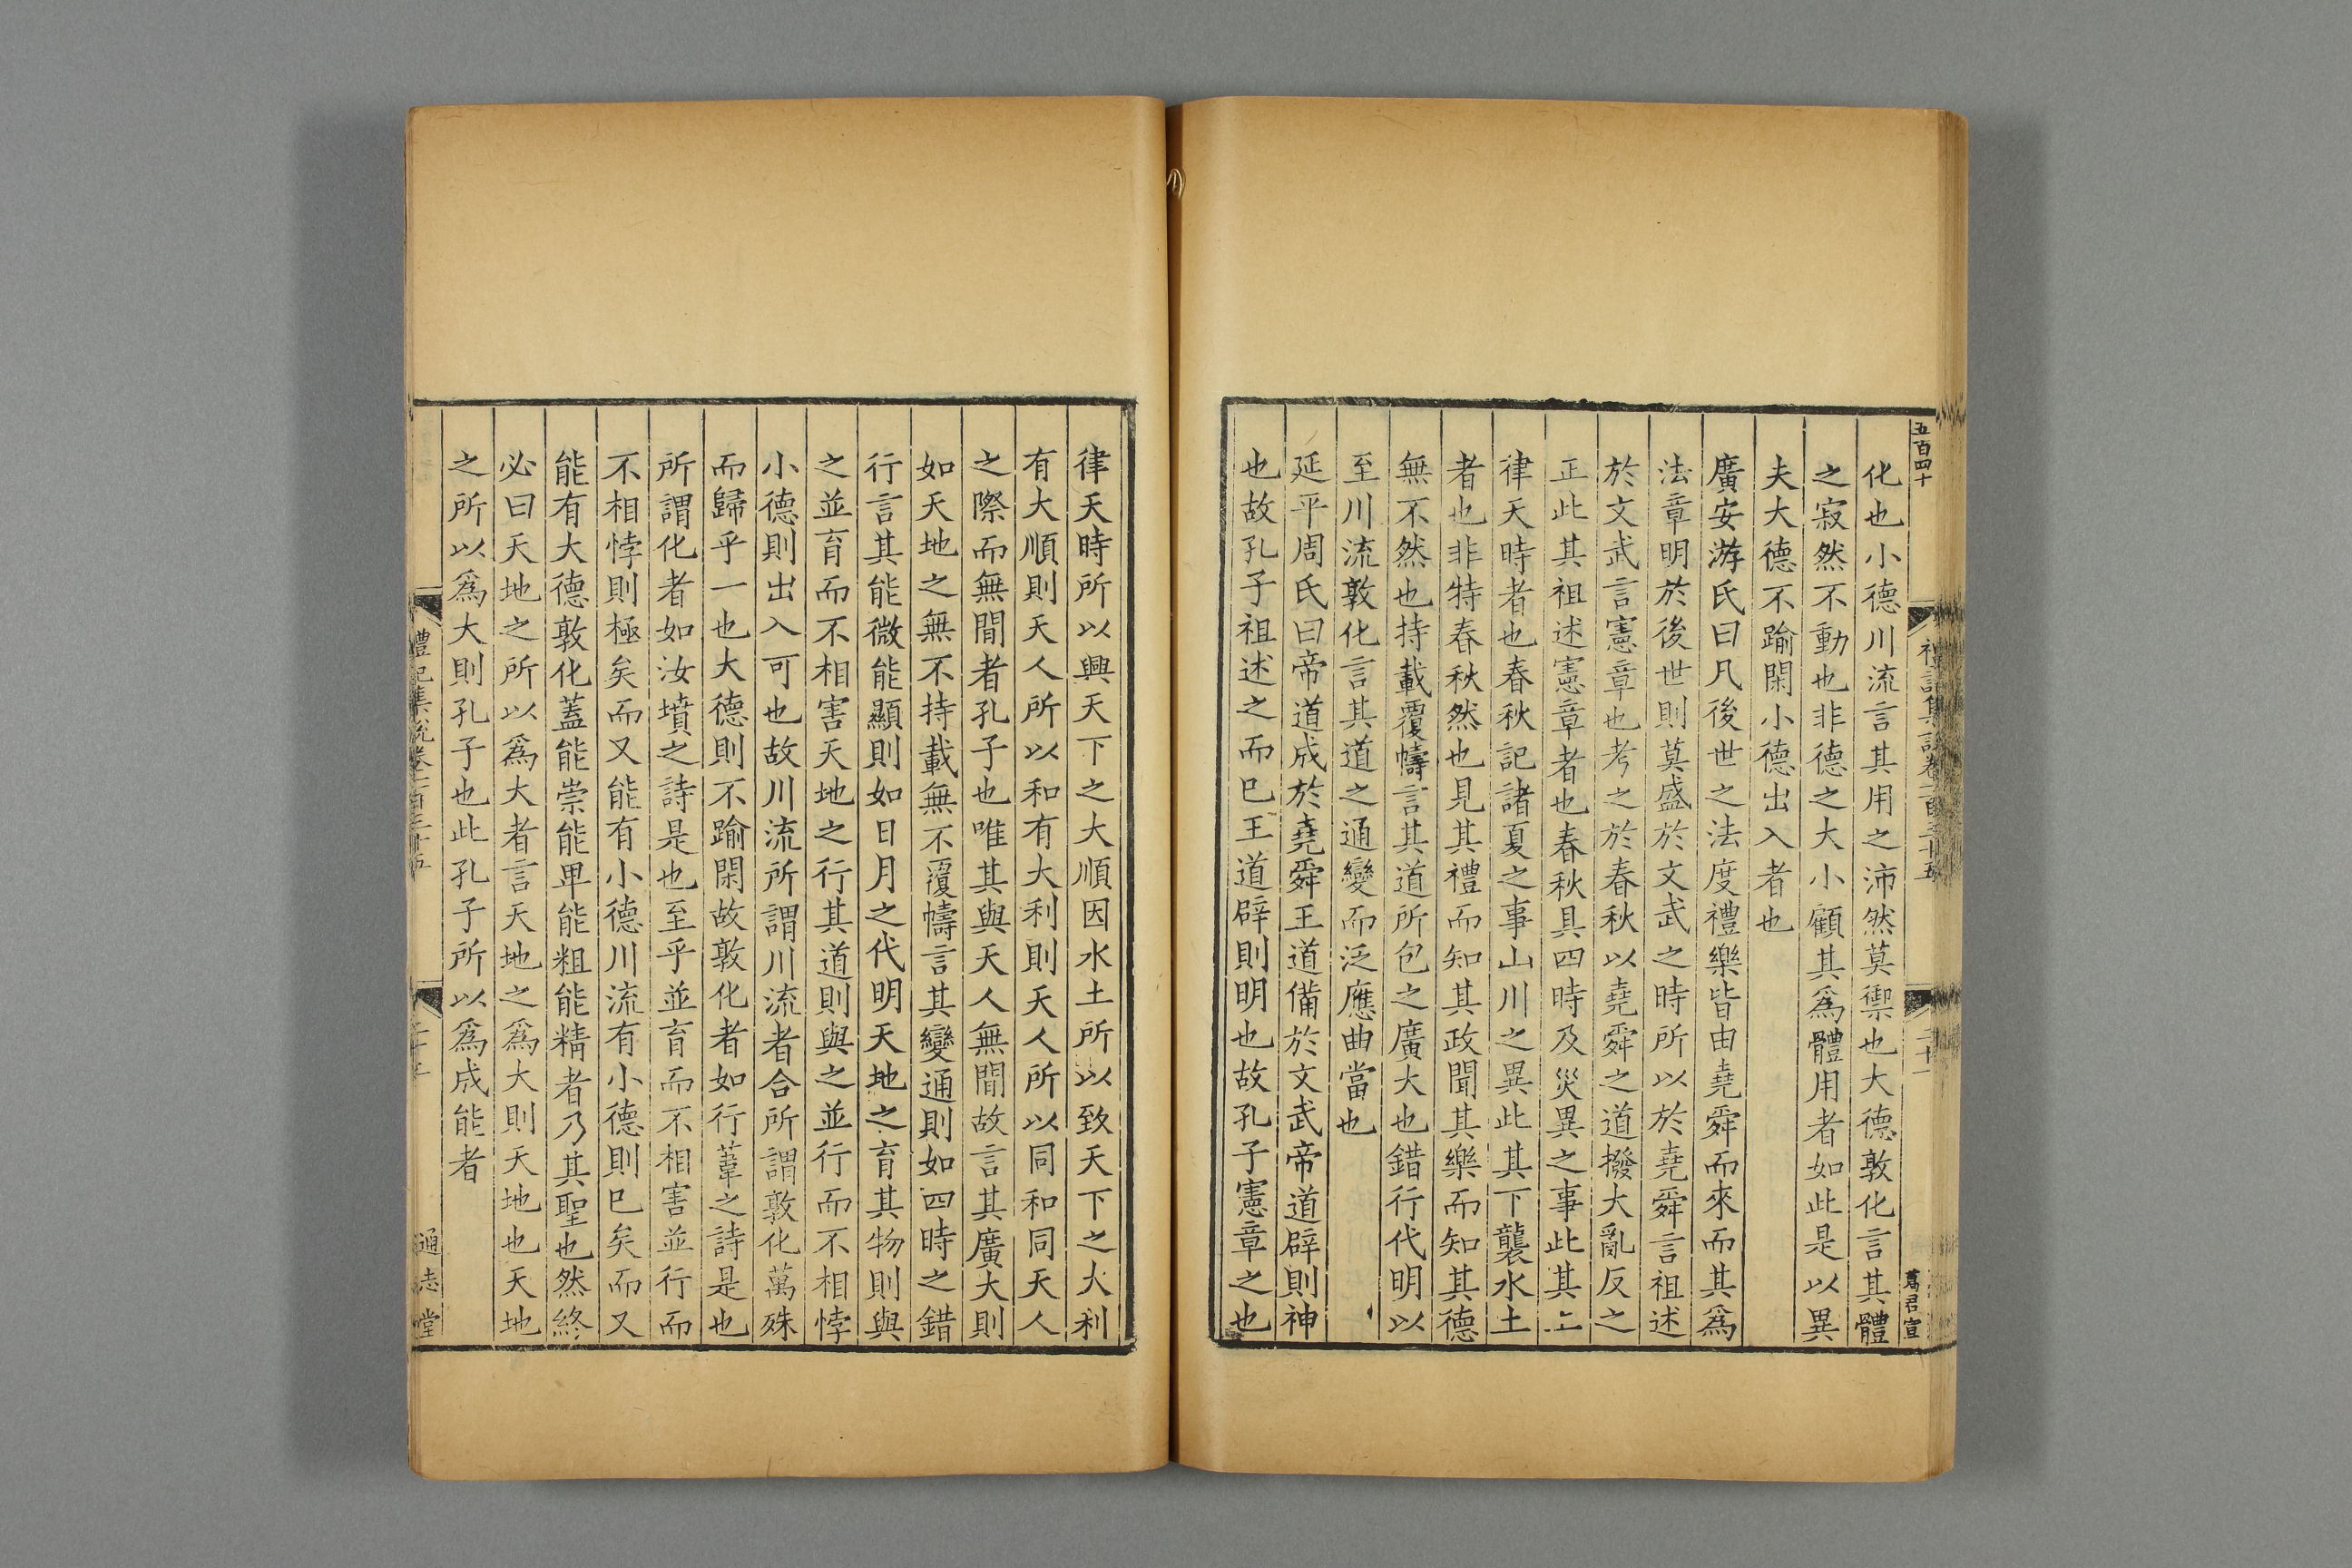 五百四十
禮記集說卷一百三十五
二十一
萬君宣
化也小德川流言其用之沛然莫禦也大德敦化言其體
之寂然不動也非德之大小顧其爲體用者如此是以異
夫大德不踰閑小德出入者也
廣安游氏曰凡後世之法度禮樂皆由堯舜而來而其爲
法章明於後世則莫盛於文武之時所以於堯舜言祖述
於文武言憲章也考之於春秋以堯舜之道撥大亂反之
正此其祖述憲章者也春秋具四時及災異之事此其上
律天時者也春秋記諸夏之事山川之異此其下襲水土
者也非特春秋然也見其禮而知其政聞其樂而知其德
無不然也持載覆幬言其道所包之廣大也錯行代明以
至川流敦化言其道之通變而泛應曲當也
延平周氏曰帝道成於堯舜王道備於文武帝道辟則神
也故孔子祖述之而已王道辟則明也故孔子憲章之也
律天時所以興天下之大順因水土所以致天下之大利
有大順則天人所以和有大利則天人所以同和同天人
之際而無間者孔子也唯其與天人無間故言其廣大則
如天地之無不持載無不覆幬言其變通則如四時之錯
行言其能微能顯則如日月之代明天地之育其物則與
之並育而不相害天地之行其道則與之並行而不相悖
小德則出入可也故川流所謂川流者合所謂敦化萬殊
而歸乎一也大德則不踰閑故敦化者如行葦之詩是也
所謂化者如汝墳之詩是也至乎並育而不相害並行而
不相悖則極矣而又能有小德川流有小德則已矣而又
能有大德敦化蓋能崇能卑能粗能精者乃其聖也然終
必曰天地之所以爲大者言天地之爲大則天地也天地
之所以爲大則孔子也此孔子所以爲成能者
禮記集說卷一百三十五
通志堂